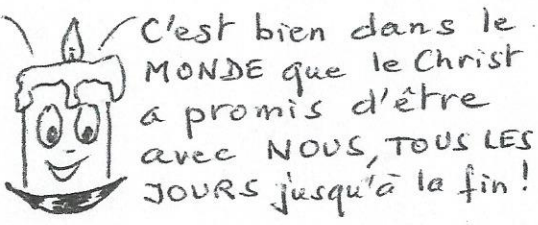 C'est bien dans le
MONDE que le Christ
a promis d'être
avec NOUS, TOUS LES
JOURS jusqu'à la fin !